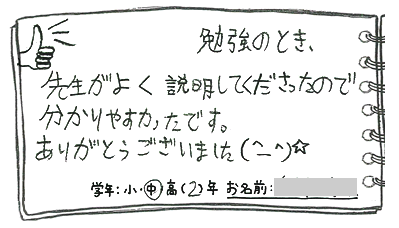 勉強のとき、
先生がよく説明してくださったので
分かりやすかったです。
ありがとうございました(^ー^)☆
学年:小・中・高(2)年 お名前: